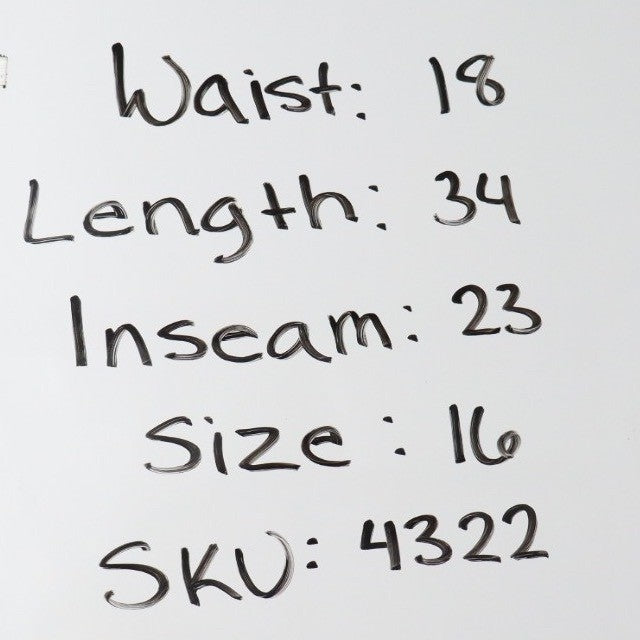 Waist: 18
Length: 34
Inseam: 23
Size: 16
SKU: 4322